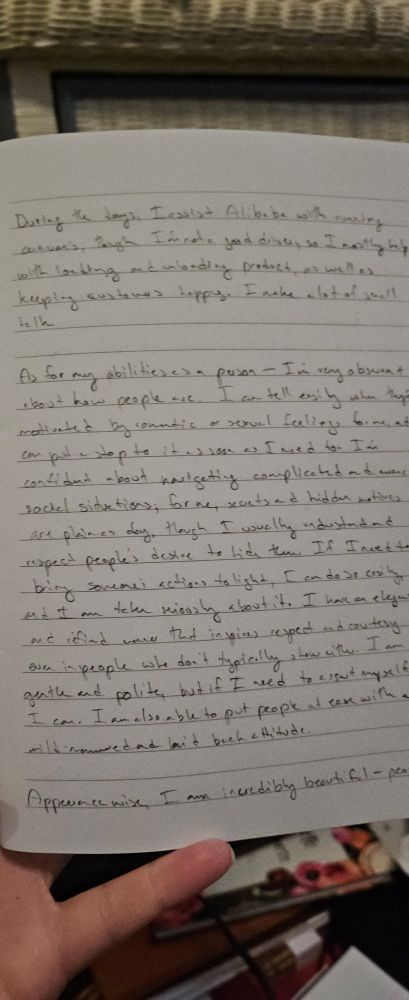 During the days, I assist Alibaba with running
though I'm not a good driver, so I mostly help
with loading and unloading product, as well as
keeping customers happy. I make a lot of small
talk
As for my abilities as a person – I'm very observant
about how people are. I can tell easily when they're
motivated by romantic or sexual feelings for me, and
can put a stop to it as soon as I need to. I'm
confident about navigating complicated and
social situations, for me, secrets and hidden motives
are plain as day, though I usually understand and
respect people's desire to hide them. If I need to
bring someone's actions to light, I can do so easily
and I am taken seriously about it. I have an elegant
and refined manner that inspires respect and courtesy
even in people who don't typically show either. I am
gentle and polite, but if I need to assert myself
I can. I am also able to put people at ease with a
mild-mannered and laid back attitude.
Appearance wise, I am incredibly beautiful – peo